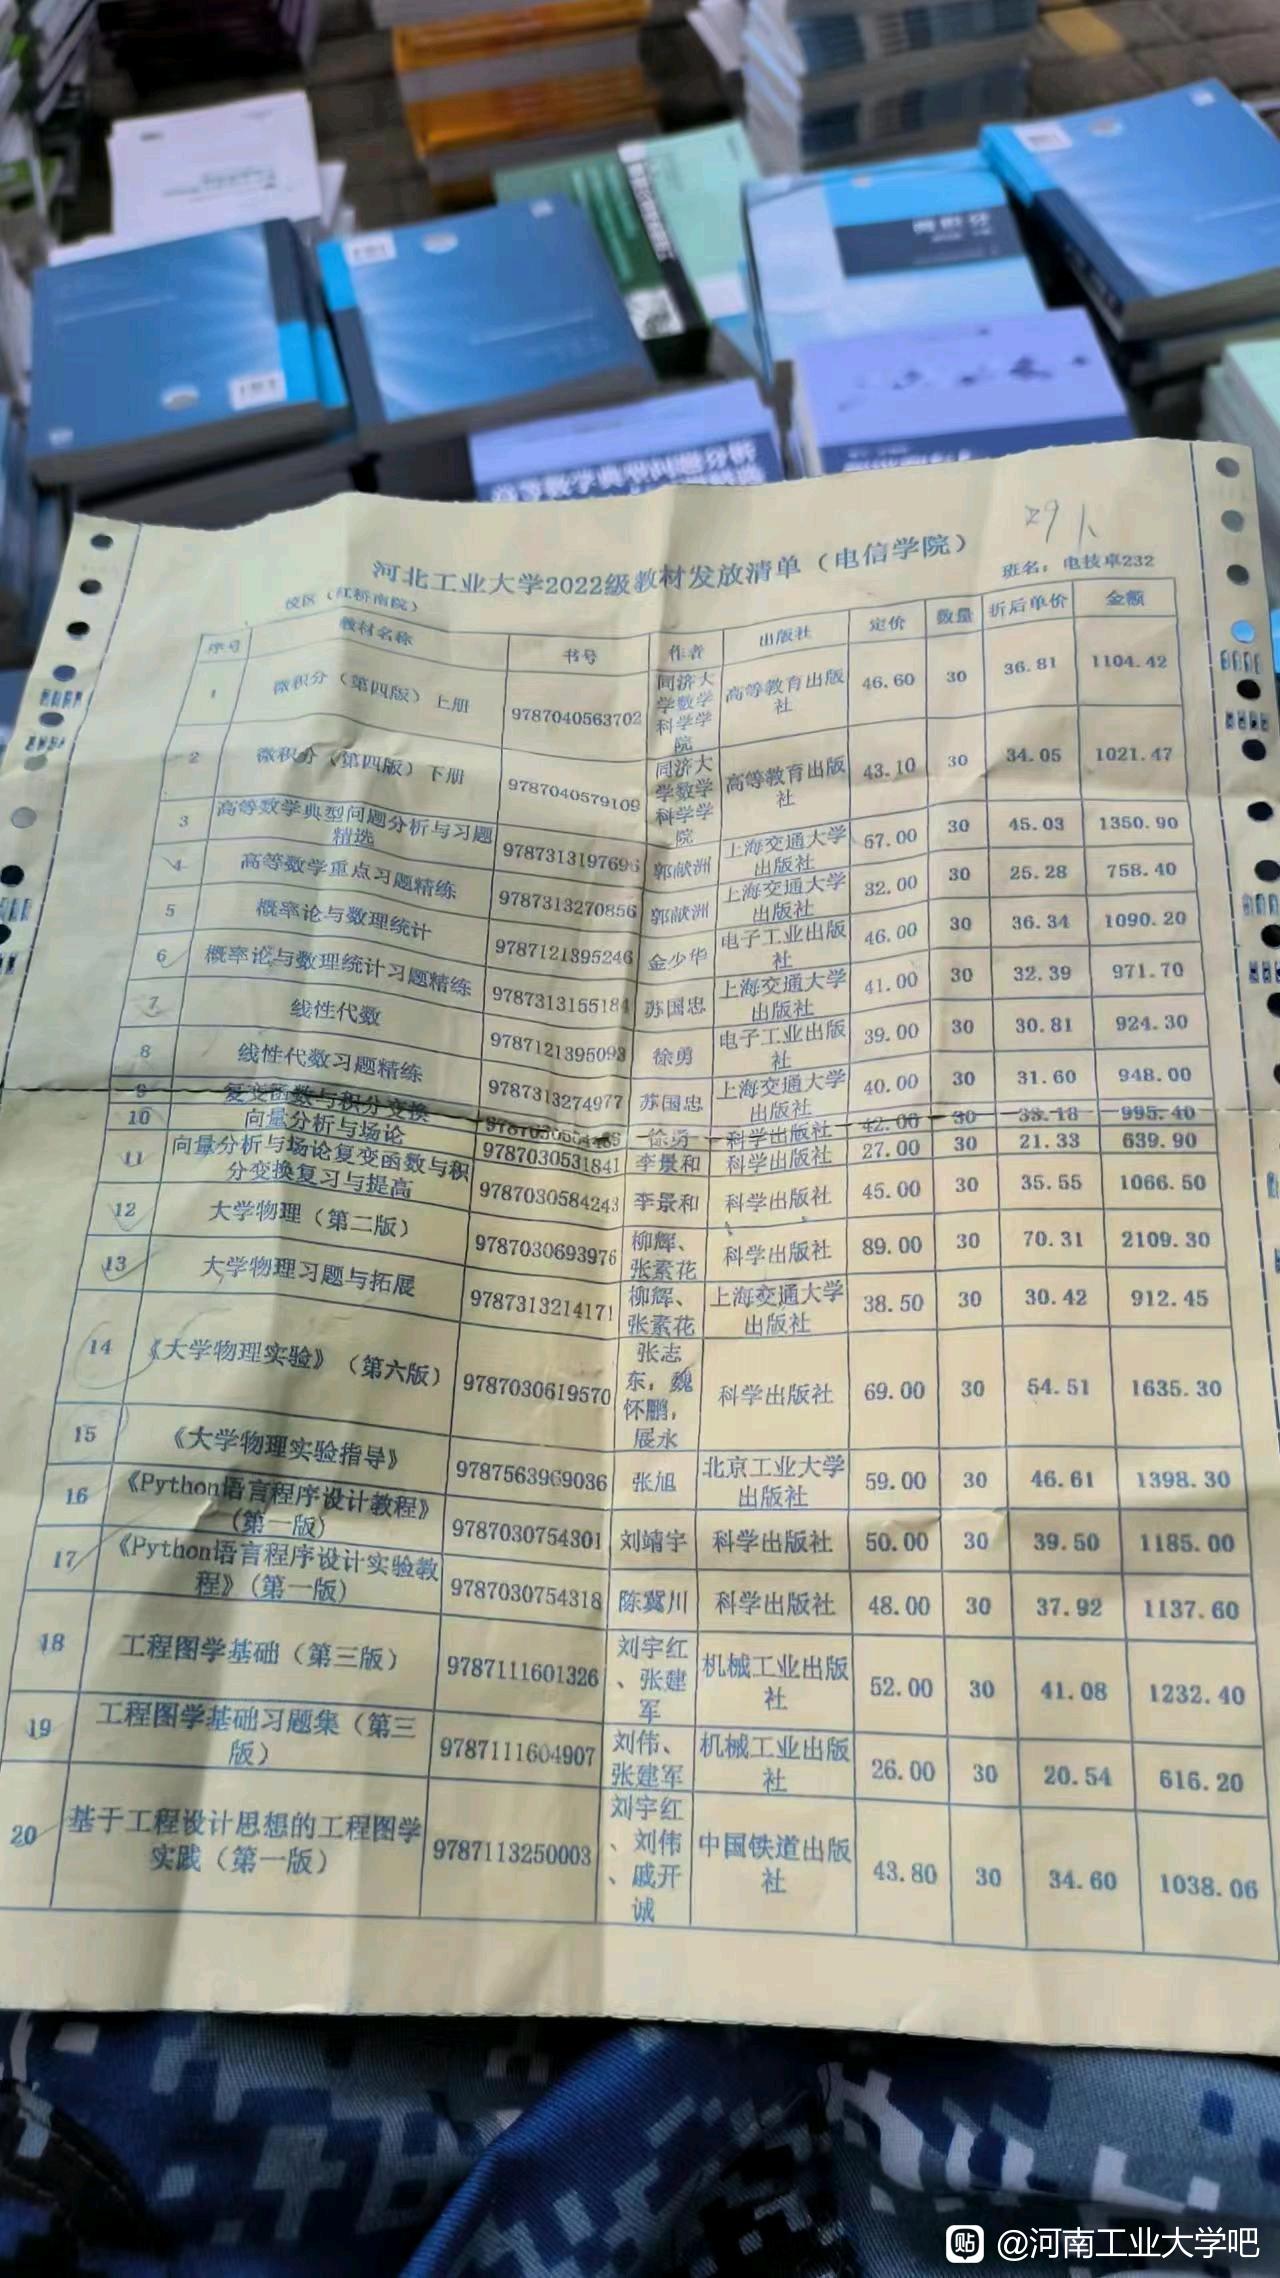 高等数学典型问题分析
29人
河北工业大学2022级教材发放清单（电信学院）
校区（红桥南院） 班名：电技卓232
序号 教材名称 书号 作者 出版社 定价 数量 折后单价 金额
1 微积分（第四版）上册 9787040563702 同济大学数学科学学院 高等教育出版社 46.60 30 36.81 1104.42
2 微积分（第四版）下册 9787040579109 同济大学数学科学学院 高等教育出版社 43.10 30 34.05 1021.47
3 高等数学典型问题分析与习题精选 9787313197696 郭献洲 上海交通大学出版社 57.00 30 45.03 1350.90
4 高等数学重点习题精练 9787313270856 郭献洲 上海交通大学出版社 32.00 30 25.28 758.40
5 概率论与数理统计 9787121395246 金少华 电子工业出版社 46.00 30 36.34 1090.20
6 概率论与数理统计习题精练 9787313155184 苏国忠 上海交通大学出版社 41.00 30 32.39 971.70
7 线性代数 9787121395093 徐勇 电子工业出版社 39.00 30 30.81 924.30
8 线性代数习题精练 9787313274977 苏国忠 上海交通大学出版社 40.00 30 31.60 948.00
9 复变函数与积分变换 徐勇 科学出版社 42.00 30 33.18 995.40
10 向量分析与场论 9787030531841 李景和 科学出版社 27.00 30 21.33 639.90
11 向量分析与场论复变函数与积分变换复习与提高 9787030584243 李景和 科学出版社 45.00 30 35.55 1066.50
12 大学物理（第二版） 9787030693976 柳辉、张素花 科学出版社 89.00 30 70.31 2109.30
13 大学物理习题与拓展 9787313214171 柳辉、张素花 上海交通大学出版社 38.50 30 30.42 912.45
14 《大学物理实验》（第六版） 9787030619570 张志东，魏怀鹏，展永 科学出版社 69.00 30 54.51 1635.30
15 《大学物理实验指导》 9787563969036 张旭 北京工业大学出版社 59.00 30 46.61 1398.30
16 《Python语言程序设计教程》（第一版） 9787030754301 刘靖宇 科学出版社 50.00 30 39.50 1185.00
17 《Python语言程序设计实验教程》（第一版） 9787030754318 陈冀川 科学出版社 48.00 30 37.92 1137.60
18 工程图学基础（第三版） 9787111601326 刘宇红、张建军 机械工业出版社 52.00 30 41.08 1232.40
19 工程图学基础习题集（第三版） 9787111604907 刘伟、张建军 机械工业出版社 26.00 30 20.54 616.20
20 基于工程设计思想的工程图学实践（第一版） 9787113250003 刘宇红、刘伟、戚开诚 中国铁道出版社 43.80 30 34.60 1038.06
贴 @河南工业大学吧